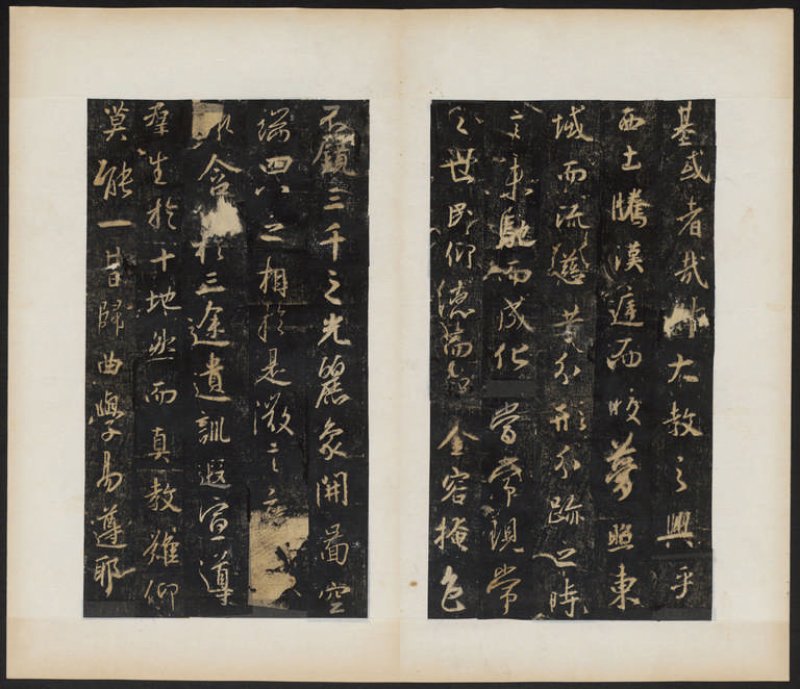 基或者哉大教之興乎
西土騰漢庭而皎夢照東
域而流慈昔分形分跡之時
言未馳而成化當常現常
之世民仰德知金容掩色
不鏡三千之光麗象開圖空
端四八之相於是微言廣
含於三途遺訓遐宣導
群生於十地然而真教難仰
莫能一旨歸曲學易遵耶